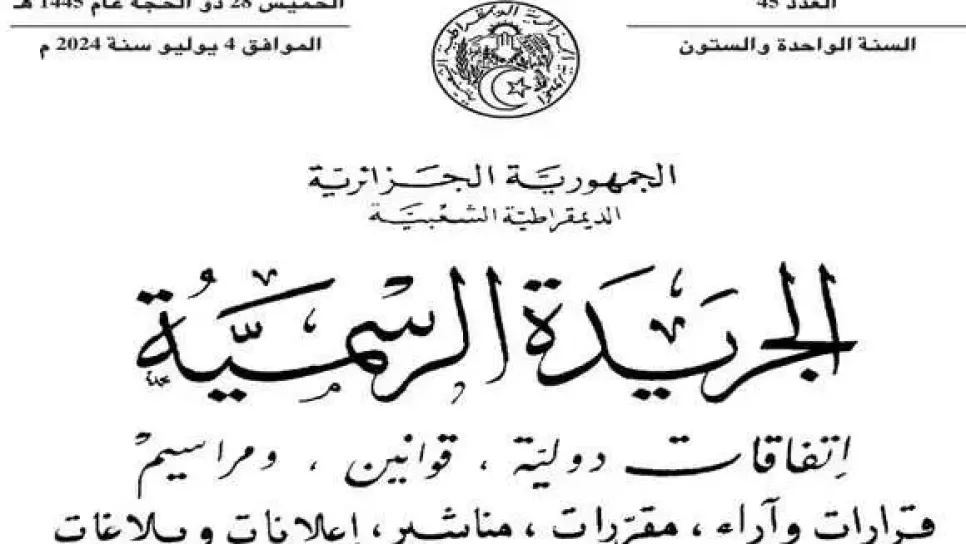 العدد 45
الخميس 28 ذو الحجة عام 1445 هـ
السنة الواحدة والستون
الموافق 4 يوليو سنة 2024 م
الجمهورية الجزائرية
الديمقراطية الشعبية
الجريدة الرسمية
إتفاقات دولية ، قوانين ، ومراسيم
قرارات وآراء ، مقررات ، مناشير ، إعلانات وبلاغات